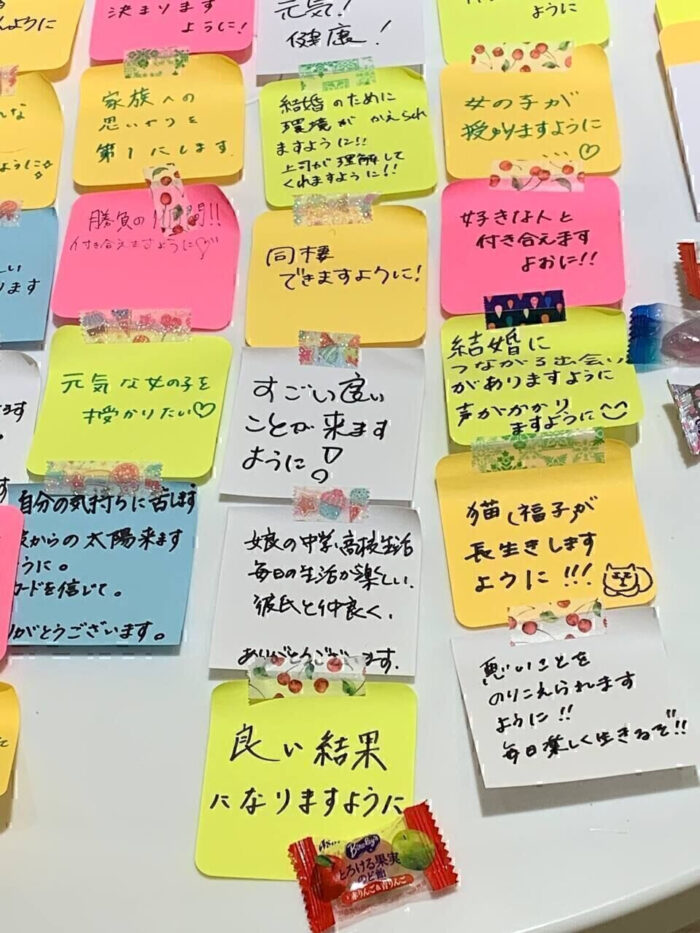 決まります
ように!
元気!
健康!
ように
家族への
思いやりを
第1にします
結婚のために
環境が かえられ
ますように!!
上司が理解して
くれますように!!
女の子が
授かりますように
♡
勝負の1
付き合えますように♡
同棲
できますように!
好きな人と
付き合えます
よおに!!
元気な女の子を
授かりたい♡
すごい良い
ことが来ます
ように!
結婚に
つながる出会い
がありますように
声がかかり
ますように
自分の気持ちに
からの太陽来ます
うに。
カードを信じて。
りがとうございます。
娘の中学、高校生活
毎日の生活が楽しい、
彼氏と仲良く、
ありがとうございます.
猫(福子)が
長生きします
ように!!!
悪いことを
のりこえられます
ように!!
毎日楽しく生きるぞ!!
良い結果
になりますように
とろける果実
のど飴
赤りんご&青りんご